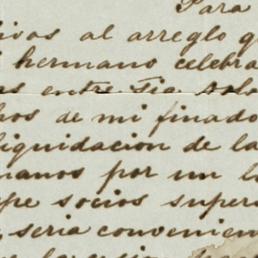 Para
ivos al arreglo q
hermano celebra
as entre sia solo
hos de mi finado
liquidacion de la
manos por un l
pe socios super
seria convenien